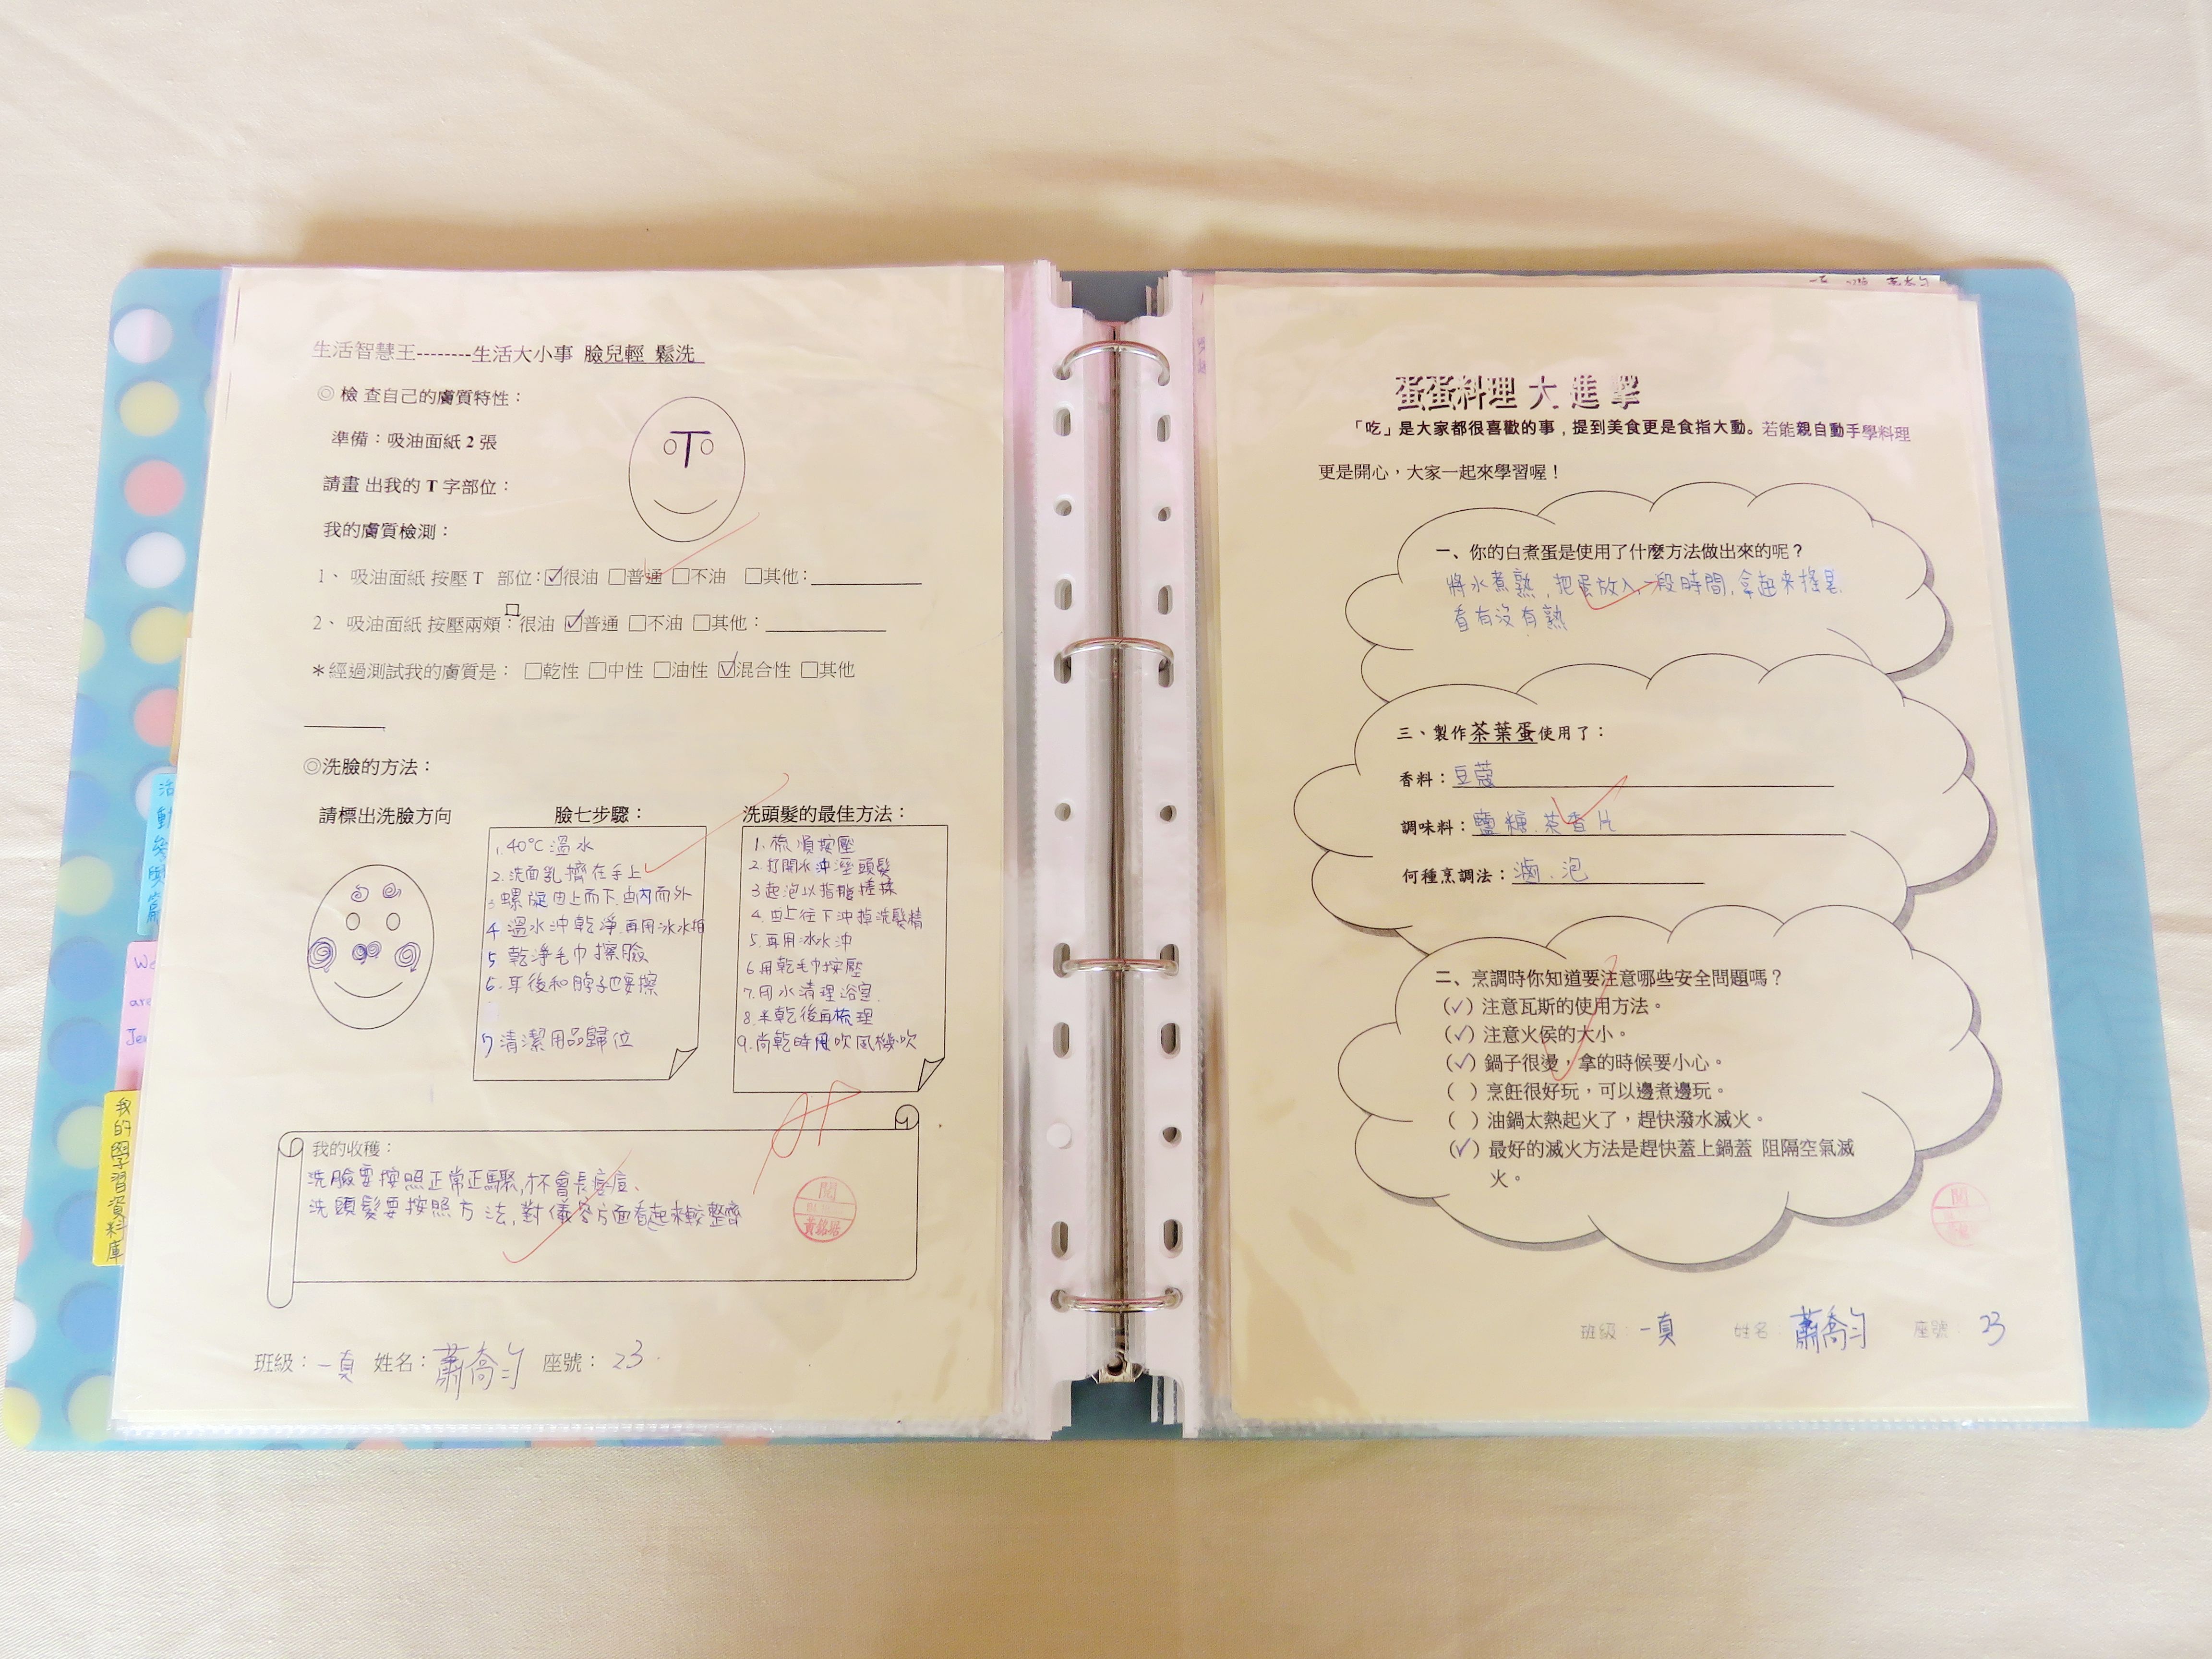 生活智慧王--------生活大小事 臉兒輕 鬆洗
◎ 檢 查自己的膚質特性：
準備：吸油面紙 2 張
請畫 出我的 T 字部位：
T
我的膚質檢測：
1、 吸油面紙 按壓 T 部位：☑很油 □普通 □不油 □其他：
2、 吸油面紙 按壓兩頰：□很油 ☑普通 □不油 □其他：
＊經過測試我的膚質是： □乾性 □中性 □油性 ☑混合性 □其他
◎洗臉的方法：
請標出洗臉方向
臉七步驟：
1. 40°C 溫水
2. 洗面乳擠在手上
3 螺旋由上而下.由內而外
4 溫水沖乾淨.再用冰水拍
5 乾淨毛巾擦臉
6. 耳後和脖子也要擦
7 清潔用品歸位
洗頭髮的最佳方法：
1. 梳順按壓
2. 打開水沖溼頭髮
3 起泡以指腹搓揉
4. 由上往下沖掉洗髮精
5. 再用冰水沖
6. 用乾毛巾按壓
7. 用水清理浴室.
8. 半乾後再梳理
9. 尚乾時用吹風機吹
我的收穫：
洗臉要按照正常正驟,才不會長痘痘.
洗頭髮要按照方法,對儀容方面看起來較整齊
閱
班級：一真 姓名：蕭喬勻 座號：23
活動參與篇
We
are
Je
我的學習資料庫
蛋蛋料理 大 進 擊
「吃」是大家都很喜歡的事，提到美食更是食指大動。若能親自動手學料理
更是開心，大家一起來學習喔！
一、你的白煮蛋是使用了什麼方法做出來的呢？
將水煮熟,把蛋放入一段時間,拿起來搖晃
看有沒有熟
三、製作茶葉蛋使用了：
香料：豆蔻
調味料：鹽.糖.茶香片
何種烹調法：滷.泡
二、烹調時你知道要注意哪些安全問題嗎？
(✓) 注意瓦斯的使用方法。
(✓) 注意火侯的大小。
(✓) 鍋子很燙，拿的時候要小心。
( ) 烹飪很好玩，可以邊煮邊玩。
( ) 油鍋太熱起火了，趕快潑水滅火。
(✓) 最好的滅火方法是趕快蓋上鍋蓋 阻隔空氣滅
火。
閱
班級：一真 姓名：蕭喬勻 座號：23